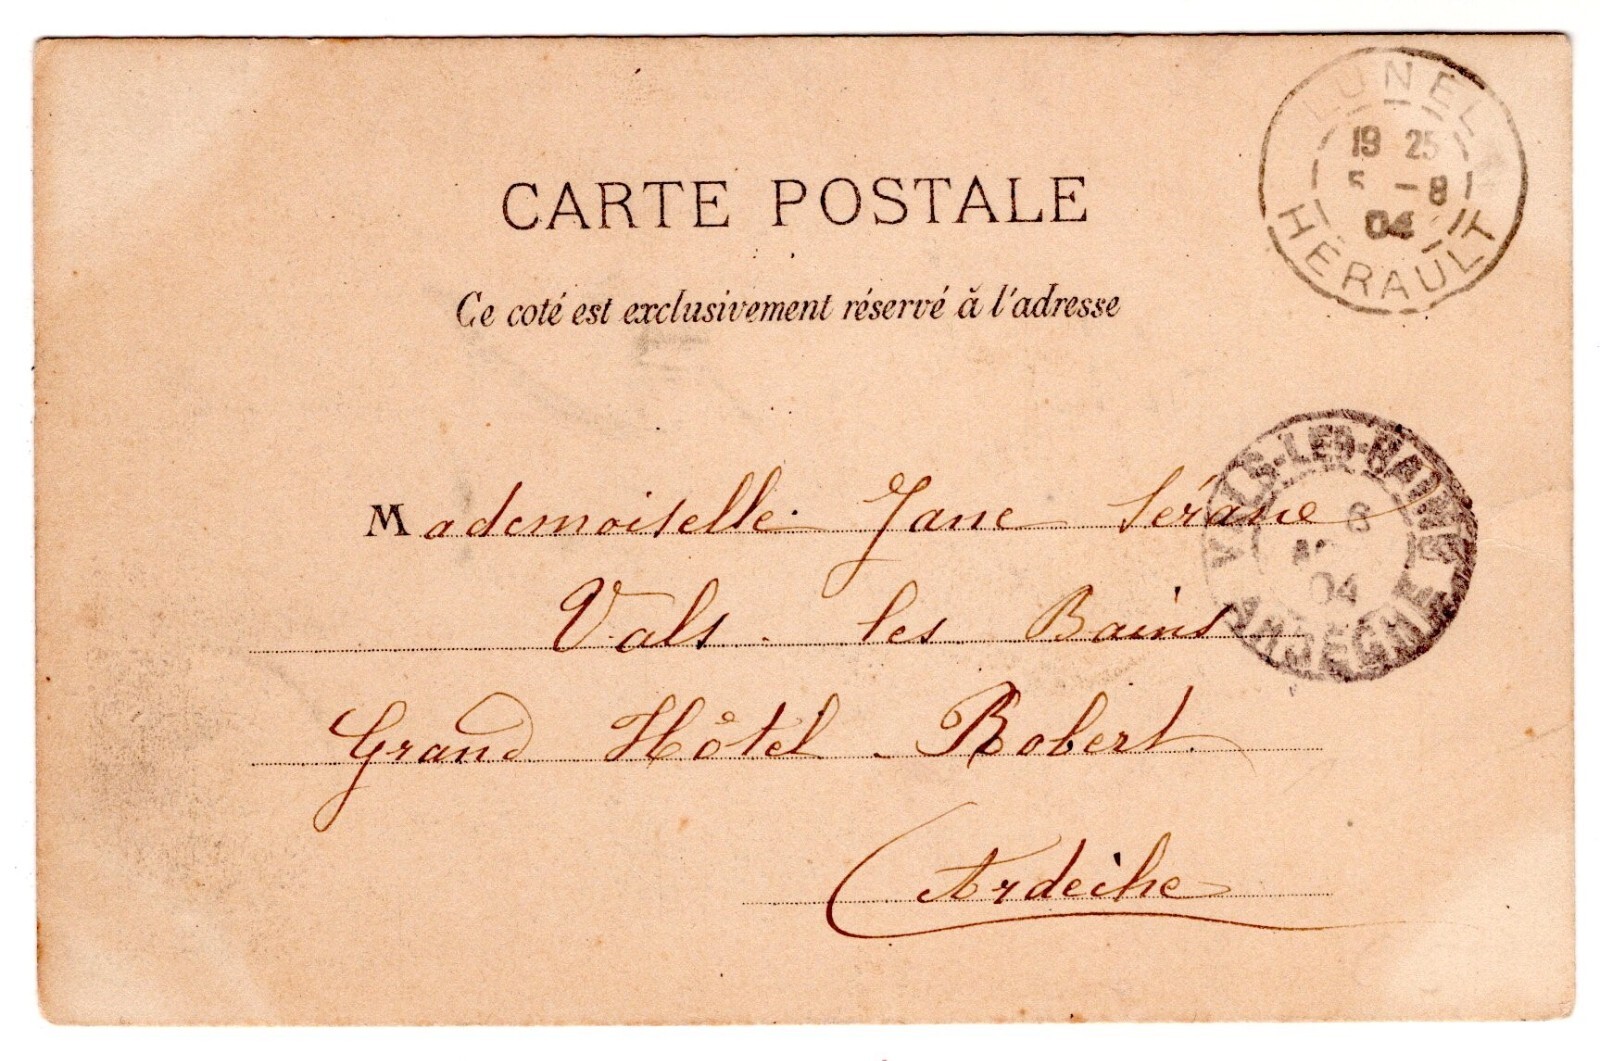 LUNEL
19 25
5 -8
04
HERAULT
CARTE POSTALE
Ce coté est exclusivement réservé à l'adresse
Mademoiselle Jane Sérane
VALS-LES-BAINS
6
04
ARDECHE
Vals-les Bains
Grand Hôtel-Robert
Ardèche